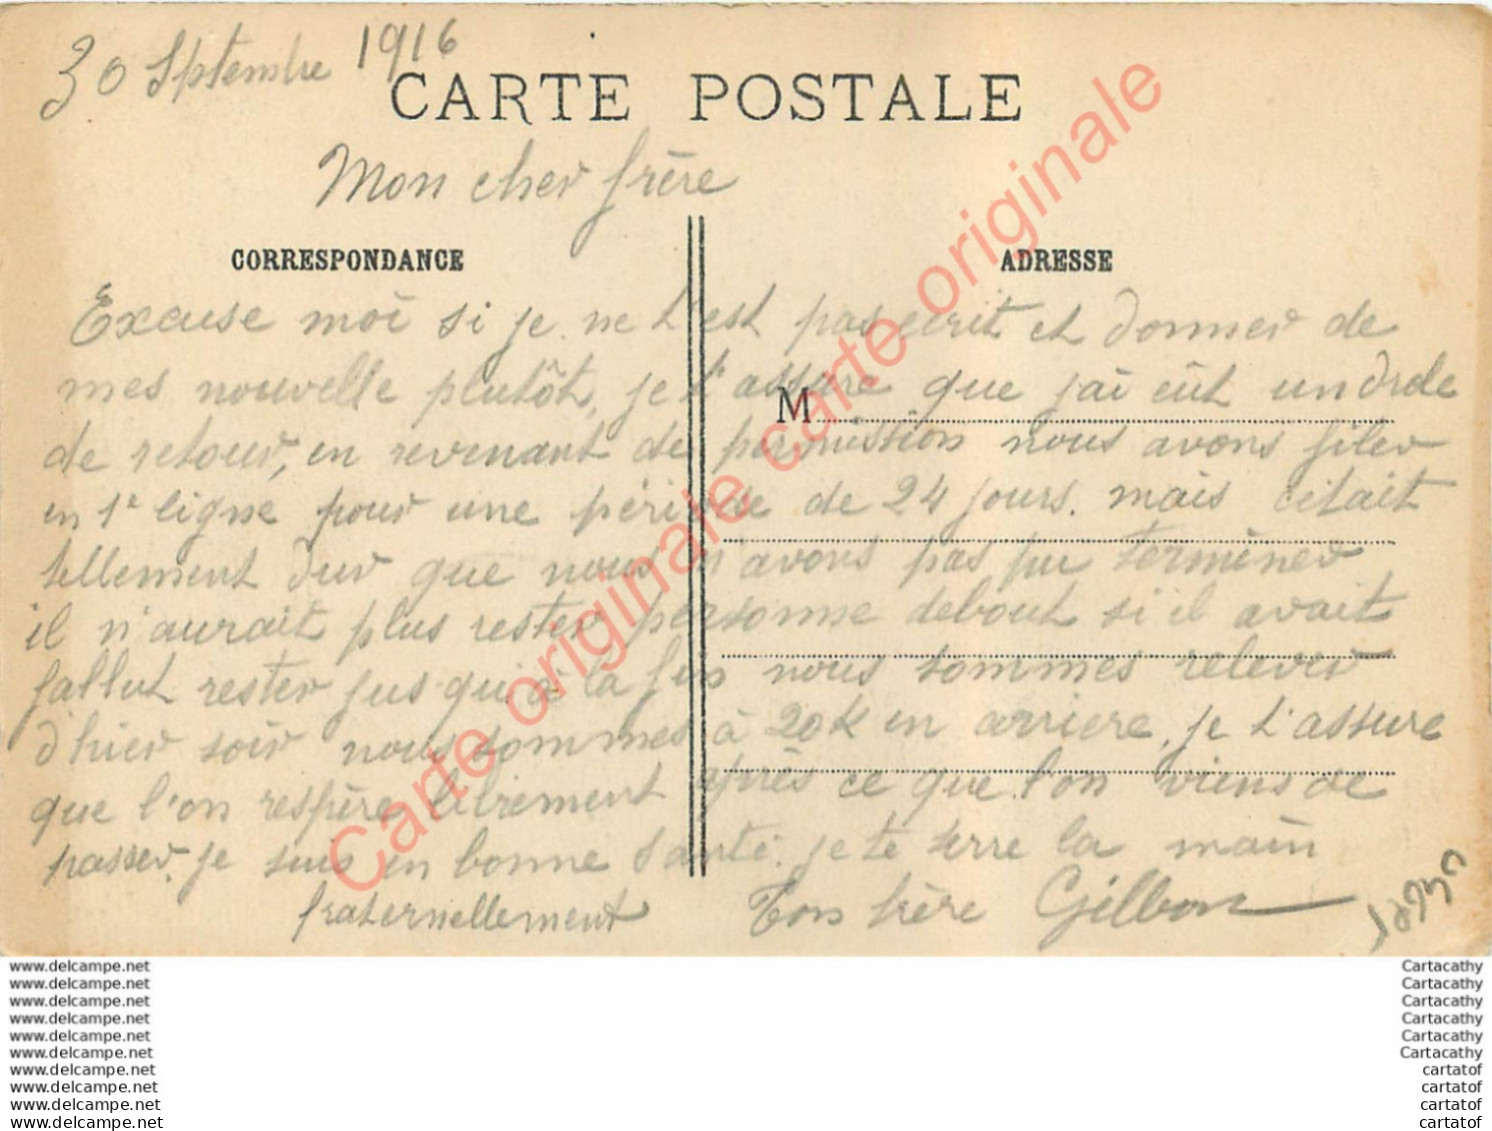 30 Septembre 1916
CARTE POSTALE
Mon cher frère
CORRESPONDANCE
ADRESSE
Excuse moi si je ne t'est pas ecrit et donner de
mes nouvelle plutôt, je t'assure que j'ai eût un drole
M
de retour, en revenant de permission nous avons filer
en 1e ligne pour une période de 24 jours. mais cetait
tellement dur que nous n'avons pas pu terminer
il n'aurait plus rester personne debout si il avait
fallut rester jus qu'à la fin nous sommes relever
d'hier soir nous sommes à 20k en arriere, je t'assure
que l'on respère librement après ce que l'on viens de
passer, je suis en bonne santé. je te serre la main
fraternellement Ton frère Gilbon
Carte originale carte originale
www.delcampe.net
www.delcampe.net
www.delcampe.net
www.delcampe.net
www.delcampe.net
www.delcampe.net
www.delcampe.net
www.delcampe.net
www.delcampe.net
www.delcampe.net
Cartacathy
Cartacathy
Cartacathy
Cartacathy
Cartacathy
Cartacathy
cartatof
cartatof
cartatof
cartatof